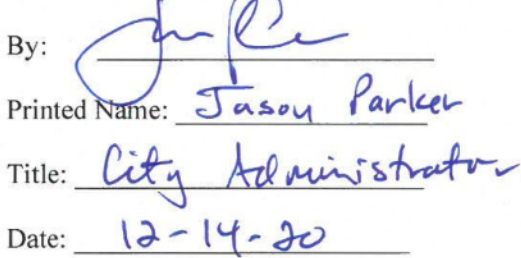 By:
Printed Name: Jason Parker
Title: City Administrator
Date: 12-14-20